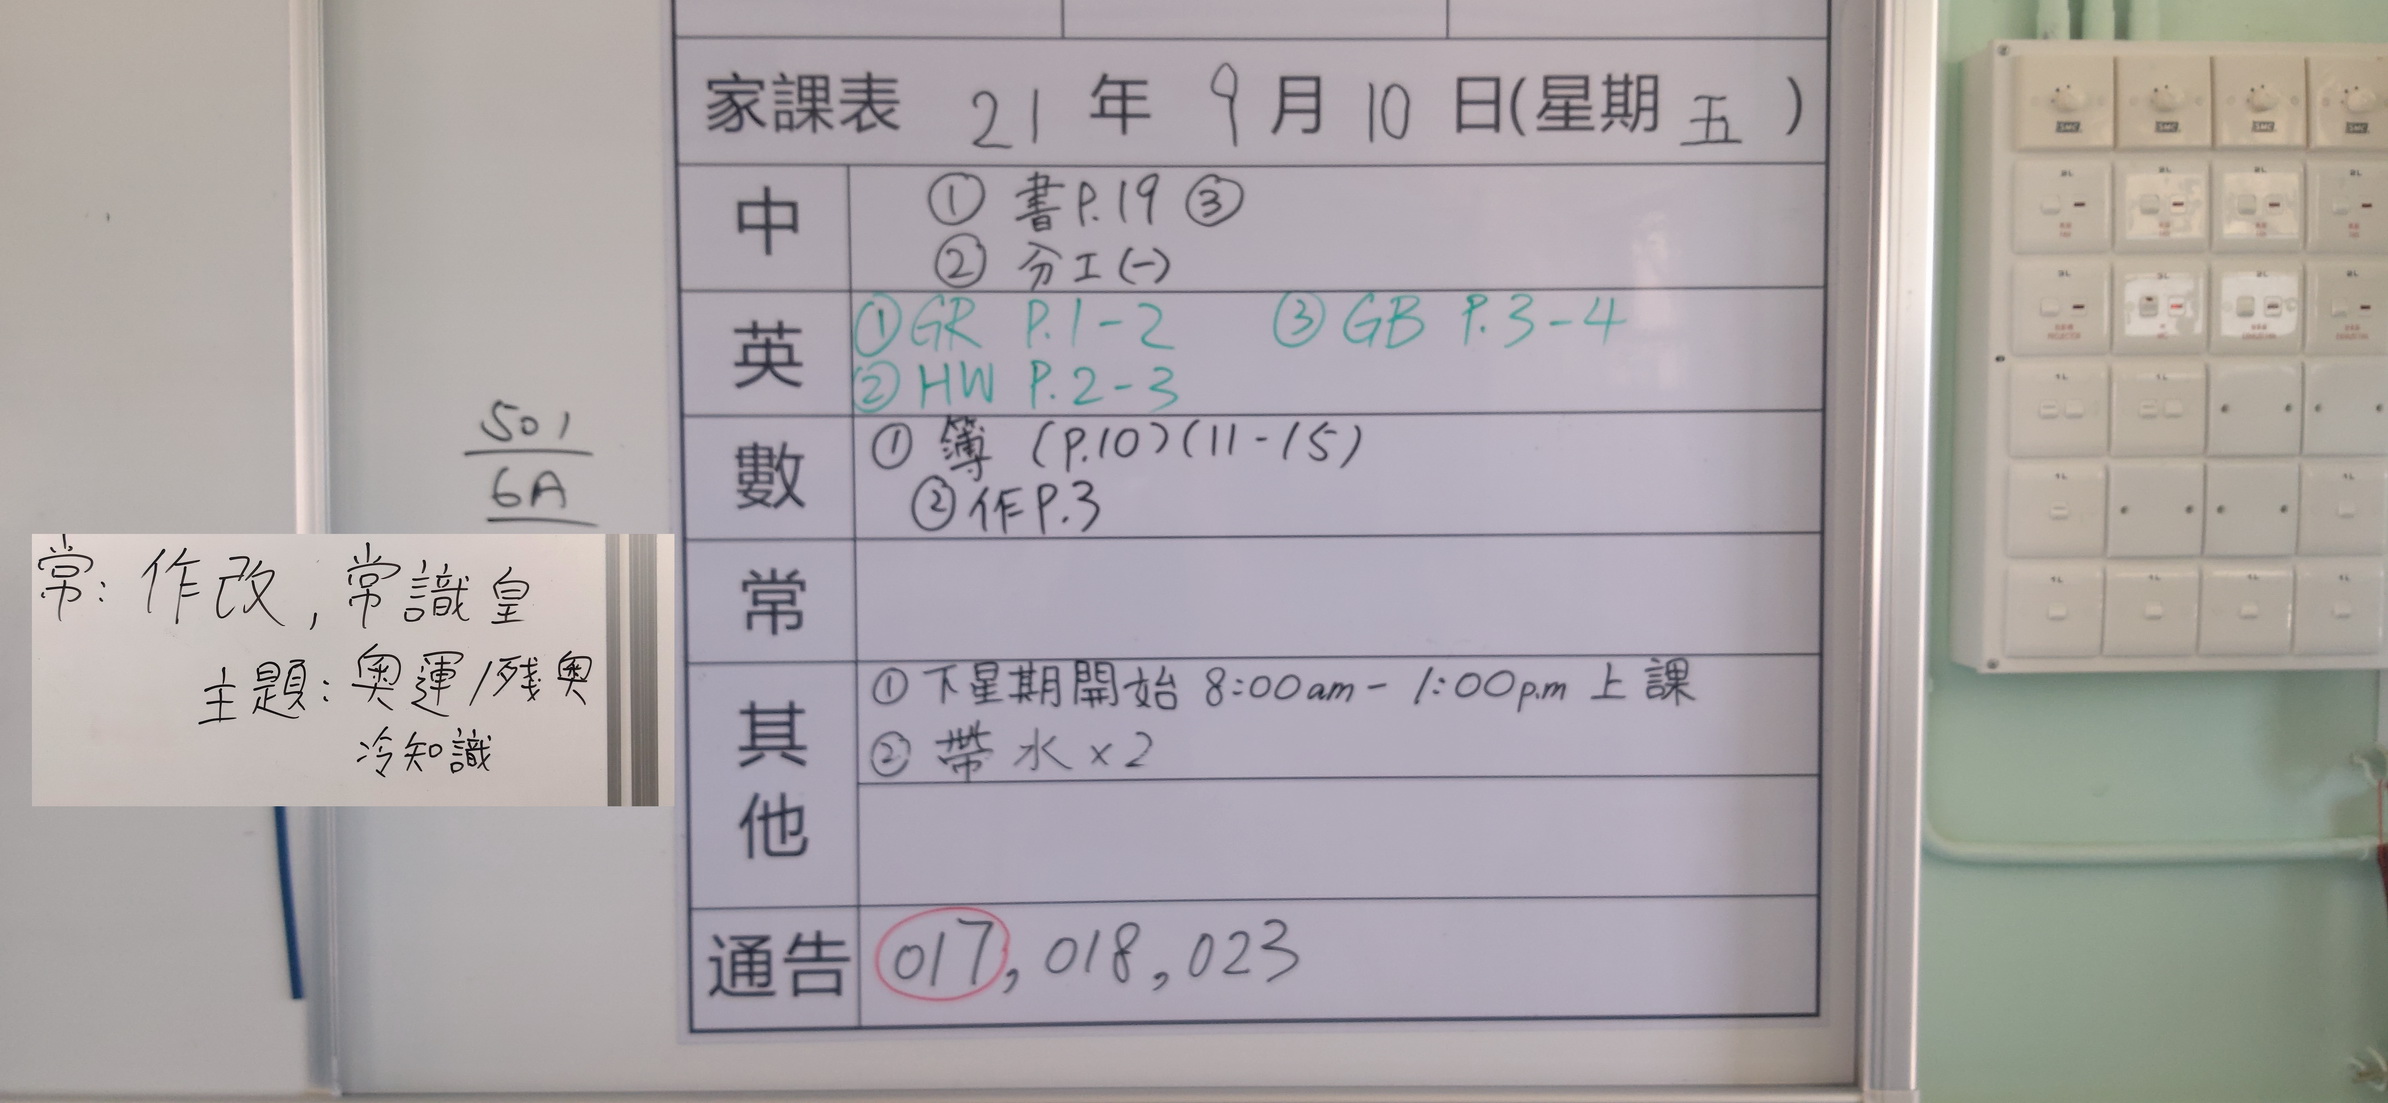 家課表 21 年 9 月 10 日(星期 五 )
中
① 書P.19 ③
② 分工(一)
英
① GR P.1-2 ③ GB P.3-4
② HW P.2-3
數
① 簿 (P.10)(11-15)
② 作P.3
常
其他
① 下星期開始 8:00am - 1:00p.m 上課
② 帶水×2
通告
017, 018, 023
501
6A
常: 作改, 常識皇
主題: 奧運/殘奧
冷知識